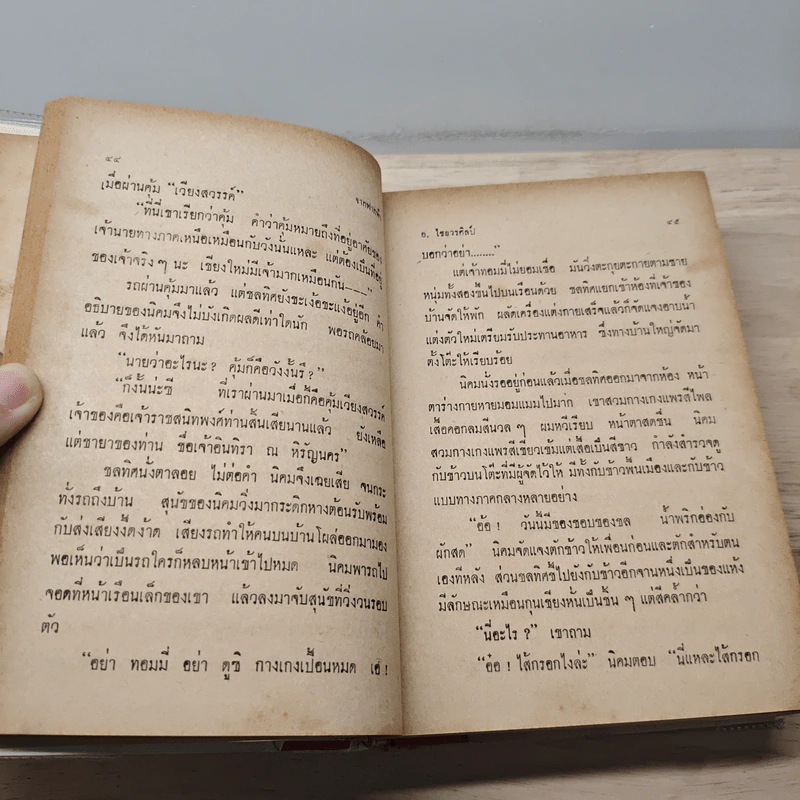 ๔๔
เมื่อผ่านคุ้ม “เวียงสวรรค์”
“ที่นี่เขาเรียกว่าคุ้ม คำว่าคุ้มหมายถึงที่อยู่อาศัยของ
เจ้านายทางภาคเหนือเหมือนกับวังนั้นแหละ แต่ต้องเป็นที่อยู่
ของเจ้าจริง ๆ นะ เชียงใหม่มีเจ้ามากเหมือนกัน——”
รถผ่านคุ้มมาแล้ว แต่ชลทิศยังชะเง้อชะแง้งอยู่อีก คำ
อธิบายของนิคมจึงไม่บังเกิดผลดีเท่าใดนัก พอรถคล้อยมา
แล้ว จึงได้หันมาถาม
“นายว่าอะไรนะ? คุ้มก็คือวังงั้นรึ?”
“ก็งั้นน่ะซี ที่เราผ่านมาเมื่อกี้คือคุ้มเวียงสวรรค์
เจ้าของคือเจ้าราชสนิทพงศ์ท่านสิ้นเสียนานแล้ว ยังเหลือ
แต่ชายาของท่าน ชื่อเจ้าอินทิรา ณ หิรัญนคร”
ชลทิศนั่งตาลอย ไม่ต่อคำ นิคมจึงเฉยเสีย จนกระ
ทั้งรถถึงบ้าน สุนัขของนิคมวิ่งมากระดิกหางต้อนรับพร้อม
กับส่งเสียงงี้ดง้าด เสียงรถทำให้คนบนบ้านโผล่ออกมามอง
พอเห็นว่าเป็นรถใครก็หลบหน้าเข้าไปหมด นิคมพารถไป
จอดที่หน้าเรือนเล็กของเขา แล้วลงมาจับสุนัขที่วิ่งวนรอบ
ตัว
“อย่า ทอมมี่ อย่า ดูซิ กางเกงเปื้อนหมด เอ๋!
อ. ไชยวรศิลป์
๔๕
บอกว่าอย่า........”
แต่เจ้าทอมมี่ไม่ยอมเชื่อ มันวิ่งตะกุยตะกายตามชาย
หนุ่มทั้งสองขึ้นไปบนเรือนด้วย ชลทิศแยกเข้าห้องที่เจ้าของ
บ้านจัดให้พัก ผลัดเครื่องแต่งกายเสร็จแล้วก็จัดแจงอาบน้ำ
แต่งตัวใหม่เตรียมรับประทานอาหาร ซึ่งทางบ้านใหญ่จัดมา
ตั้งโต๊ะให้เรียบร้อย
นิคมนั่งรออยู่ก่อนแล้วเมื่อชลทิศออกมาจากห้อง หน้า
ตาร่างกายหายมอมแมมไปมาก เขาสวมกางเกงแพรสีไพล
เสื้อคอกลมสีนวล ๆ ผมหวีเรียบ หน้าตาสดชื่น นิคม
สวมกางเกงแพรสีเขียวเข้มแต่เสื้อเป็นสีขาว กำลังสำรวจดู
กับข้าวบนโต๊ะที่มีผู้จัดไว้ให้ มีทั้งกับข้าวพื้นเมืองและกับข้าว
แบบทางภาคกลางหลายอย่าง
“อ้อ! วันนี้มีของชอบของชล น้ำพริกอ่องกับ
ผักสด” นิคมจัดแจงตักข้าวให้เพื่อนก่อนและตักสำหรับตน
เองทีหลัง ส่วนชลทิศชี้ไปยังกับข้าวอีกจานหนึ่งเป็นของแห้ง
มีลักษณะเหมือนกุนเชียงหั่นเป็นชิ้น ๆ แต่สีคล้ำกว่า
“นี่อะไร?” เขาถาม
“อ๋อ! ไส้กรอกไงล่ะ” นิคมตอบ “นี่แหละไส้กรอก